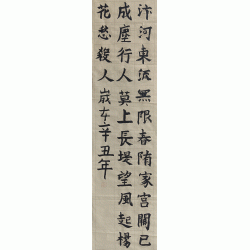 汴河東流無限春隋家宮闕已
成塵行人莫上長堤望風起楊
花愁殺人歲在辛丑年